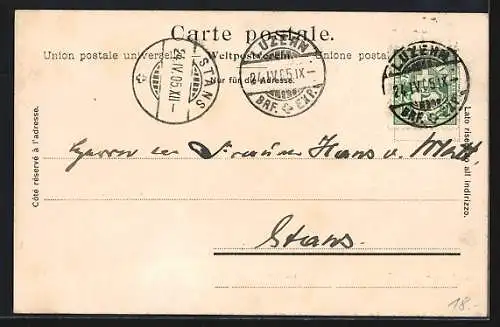 Carte postale.
Union postale universelle. Weltpostverein. Unione postale
Nur für die Adresse.
STANS
24.IV.05.XII
LUZERN
24.IV.05.IX-
BRF. EXP.
LUZERN
24.IV.05.IX-
BRF. EXP.
Côté réservé à l'adresse.
Lato riservato all indirizzo.
Herrn u. Frau Hans v. Matt,
Stans
18.-